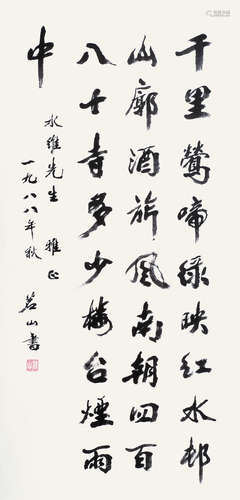 千里鶯啼綠映紅水邨
山廓酒旂風南朝四百
八十寺多少樓台煙雨
中
水維先生 雅正
一九八八年秋 茗山書